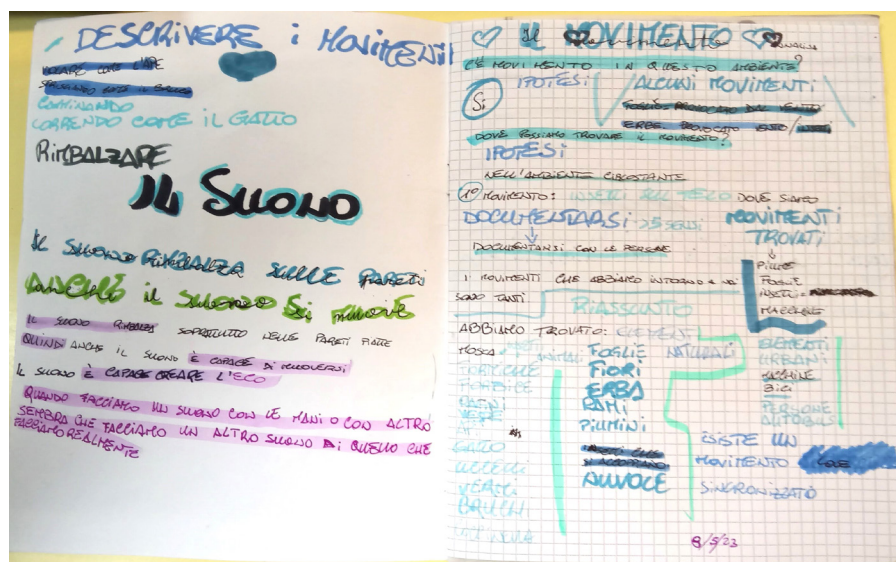 DESCRIVERE i MOVIMENTI
VOLARE COME L'APE
CAMMINANDO
CORRENDO COME iL GATTO
RiMBALZARE
IL SUONO
IL SUONO RIMBALZA SULLE PARETI
ANCHE il SUONO Si MUOVE
IL SUONO RIMBALZA SOPRATTUTTO NELLE PARETI PIATTE
QUINDI ANCHE IL SUONO È CAPACE DI MUOVERSI
IL SUONO È CAPACE CREARE L'ECO
QUANDO FACCIAMO UN SUONO CON LE MANI O CON ALTRO
SEMBRA CHE FACCIAMO UN ALTRO SUONO Di QUELLO CHE
FACCIAMO REALMENTE
IL MOVIMENTO
C'È MOVIMENTO IN QUESTO AMBIENTE?
Si
IPOTESI
ALCUNI MOVIMENTI
FOGLIE PROVOCATO DAL VENTO
ERBE PROVOCATO VENTO/INSETTI
DOVE POSSIAMO TROVARE IL MOVIMENTO?
IPOTESI
NELL'AMBIENTE CIRCOSTANTE
1° MOVIMENTO: INSETTI SUL TELO DOVE SIAMO
DOCUMENTARSI >5 SENSI
DOCUMENTARSI CON LE PERSONE
MOVIMENTI
TROVATI
PIUME
FOGLIE
INSETTI
MACCHINE
I MOVIMENTI CHE ABBIAMO INTORNO A NOI
SONO TANTI
RIASSUNTO
ABBIAMO TROVATO: ELEMENTI
NATURALI
MOSCA
ANIMALI
FORMICHE
GATTO
UCCELLI
VERMI
BRUCHI
FOGLIE
FiORi
ERBA
RAMi
PiUMiNi
NUVOLE
ELEMENTI
URBANI
MACCHINE
BICI
PERSONE
AUTOBUS
ESISTE UN
MOVIMENTO
SINCRONIZZATO
8/5/23